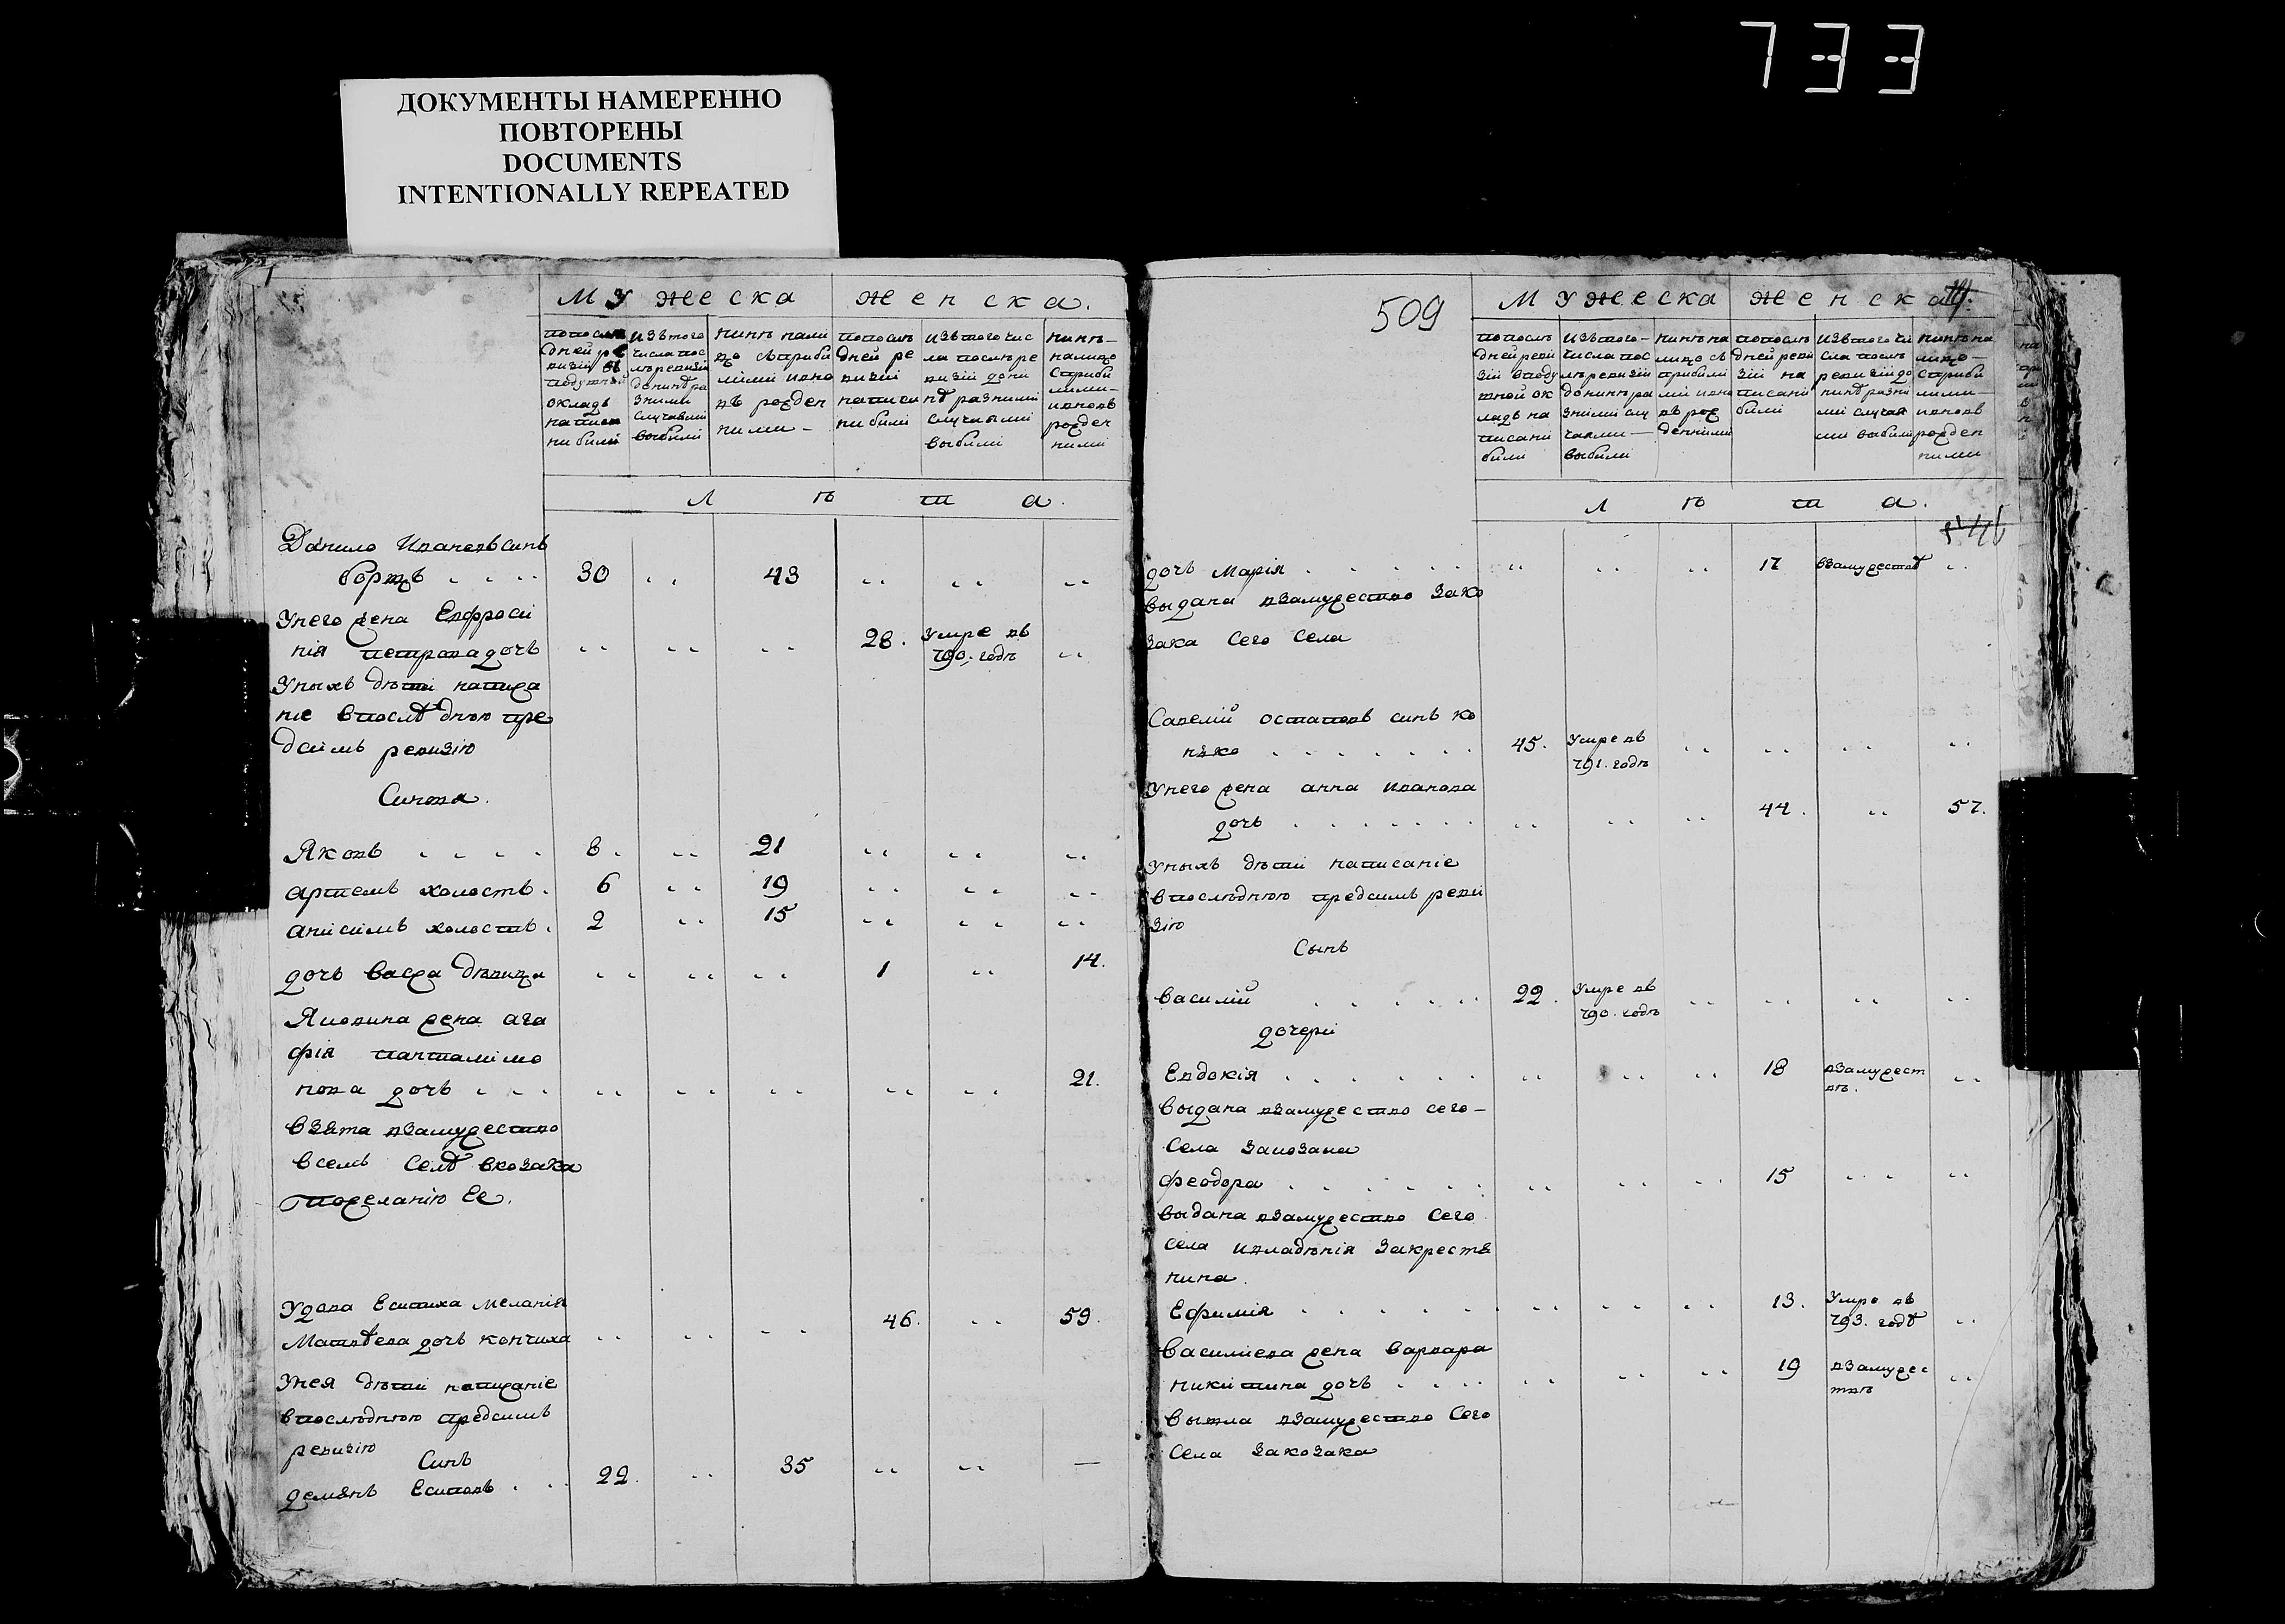 733
ДОКУМЕНТЫ НАМЕРЕННО
ПОВТОРЕНЫ
DOCUMENTS
INTENTIONALLY REPEATED
Мужеска
женска.
попосле
дней ре
визіи въ
подушной
окладъ
написа
ни били
изътого
числа пос
лѣ ревизіи
до нинѣ ра
зними
случаями
выбили
нинѣ нали
цо съ приби
лими и вно
въ рожден
ними -
попослѣ
дней ре
визіи
написа
ни били
изътого чис
ла послѣ ре
визіи до ни
нѣ разними
случаями
выбили
нинѣ-
налицо
сприби
лими-
ивновь
рожден
ними
Лѣта.
Данило Ивановъ синъ
борщъ . . . . 30 43
Унего жена Евфроси
нія петрова дочь 28. Умре въ 790. годѣ
Унихъ дѣти написа
ніе впослѣднюю пре
дсимъ ревизію
Синовя.
Яковъ . . . . 8. 21
артемъ холостъ. 6 19
анисимъ холостъ. 2 15
дочь васса дѣвица 1 14.
Яковина жена ага
фія пантелимо
нова дочь . . . 21.
взята взамужество
всемъ селѣ вкозака
пожеланію Ее.
Удова Есипиха меланія
Матвѣева дочь 46. 59.
Унея дѣти написаніе
впослѣднюю предсимъ
ревизію
Синъ
демянъ Есиповъ . . . 22. 35 —
509
Мужеска
женска
попослѣ
дней реви
зіи вподу
шной ок
ладъ на
писани
били
изътого-
числа пос
лѣ ревизіи
до нинѣ ра
зними слу
чаями-
выбили
нинѣ на
лицо съ
прибили
ми ивно
въ рож
денними
попослѣ
дней реви
зіи на
писани
били
изътого чи
сла послѣ
ревизіи до
нинѣ разни
ми случая
ми выбили
нинѣ на
лицо-
сприби
лими-
ивновь
рожден
ними
Лѣта.
дочь Марія . . . . . 17 взамужествѣ
выдана взамужество зако
зака сего села
Савелій остаповъ синъ 45. Умре въ 791. годѣ
Унего жена анна иванова
дочь . . . . . . . 44. 57.
Унихъ дѣти написаніе
впослѣднюю предсимъ реви
зію
Сынъ
василій . . . . . . 22. Умре въ 790. годѣ
дочери
Евдокія . . . . . . 18 взамужест
вѣ.
выдана взамужество сего-
села закозака
феодора . . . . . . 15
выдана взамужество сего
села ивладѣнія закрестя
нина.
Ефимія . . . . . . 13. Умре въ 793. годѣ
василиева жена варвара
никитина дочь . . . . 19 взамужес
твѣ
вышла взамужество сего
села закозака